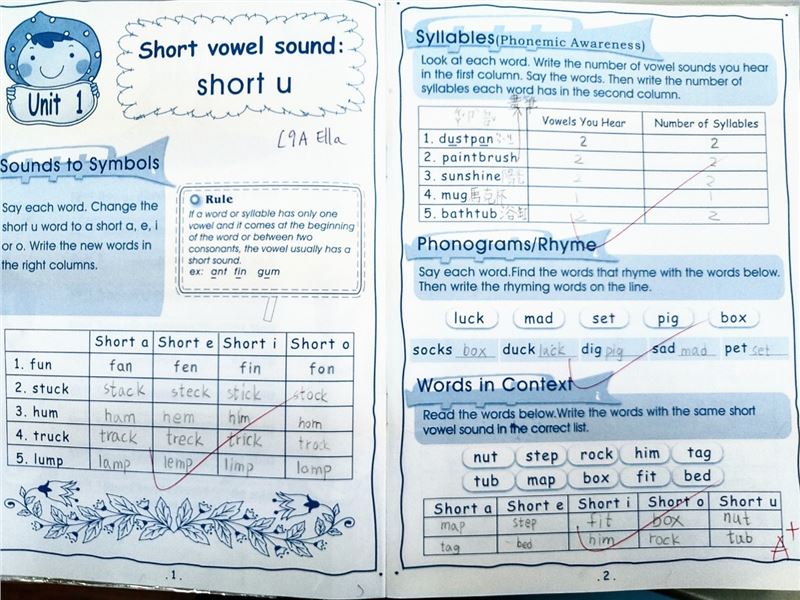 Unit 1
Short vowel sound:
short u
L9A Ella
Sounds to Symbols
Say each word. Change the
short u word to a short a, e, i
or o. Write the new words in
the right columns.
Rule
If a word or syllable has only one
vowel and it comes at the beginning
of the word or between two
consonants, the vowel usually has a
short sound.
ex: ant fin gum
Short a Short e Short i Short o
1. fun fan fen fin fon
2. stuck stack steck stick stock
3. hum ham hem him hom
4. truck track treck trick trock
5. lump lamp lemp limp lomp
.1.
Syllables(Phonemic Awareness)
Look at each word. Write the number of vowel sounds you hear
in the first column. Say the words. Then write the number of
syllables each word has in the second column.
Vowels You Hear Number of Syllables
1. dustpan 2 2
2. paintbrush 2 2
3. sunshine 2 2
4. mug 馬克杯 1 1
5. bathtub 浴缸 2
Phonograms/Rhyme
Say each word.Find the words that rhyme with the words below.
Then write the rhyming words on the line.
luck mad set pig box
socks box duck luck dig pig sad mad pet set
Words in Context
Read the words below.Write the words with the same short
vowel sound in the correct list.
nut step rock him tag
tub map box fit bed
Short a Short e Short i Short o Short u
map step fit box nut
tag bed him rock tub
A+
.2.